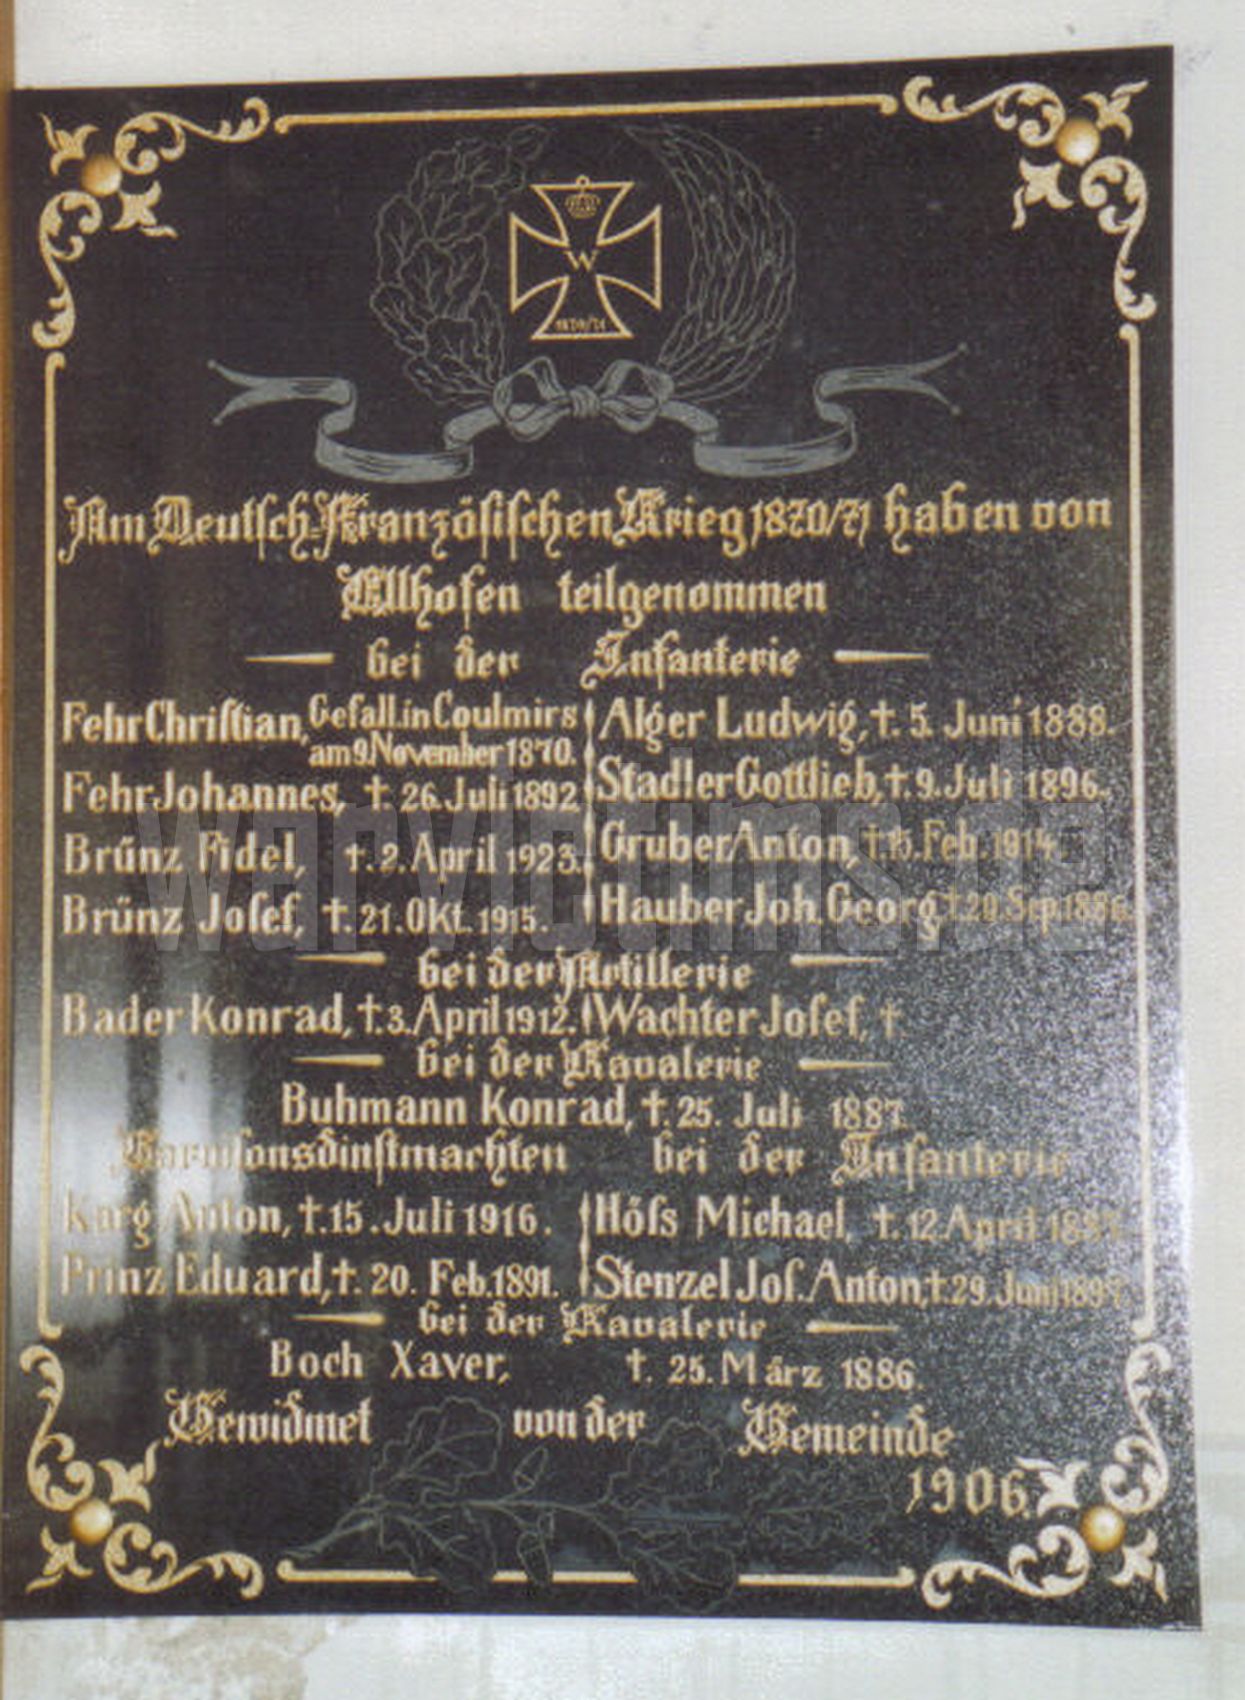 W
1870/71
Am Deutsch=Französischen Krieg 1870/71 haben von
Ellhofen teilgenommen
bei der Infanterie
Fehr Christian, Gefall. in Coulmirs
am 9. November 1870.
Alger Ludwig, †. 5. Juni 1888.
Fehr Johannes, †. 26. Juli 1892
Stadler Gottlieb, †. 9. Juli 1896.
Brünz Fidel, †. 2. April 1923.
Gruber Anton, † 15. Feb. 1914.
Brünz Josef, †. 21. Okt. 1915.
Hauber Joh. Georg, † Sep. 1886.
bei der Artillerie
Bader Konrad, †. 3. April 1912.
Wachter Josef, †
bei der Kavalerie
Buhmann Konrad, †. 25. Juli 1887.
Garnisonsdinstmachten bei der Infanterie
Karg Anton, †. 15. Juli 1916.
Höss Michael, †. 12. April
Prinz Eduard, †. 20. Feb. 1891.
Stenzel Jos. Anton, †. 29. Juni
bei der Kavalerie
Boch Xaver, †. 25. März 1886.
Gewidmet von der Gemeinde
1906.
warvictims.de